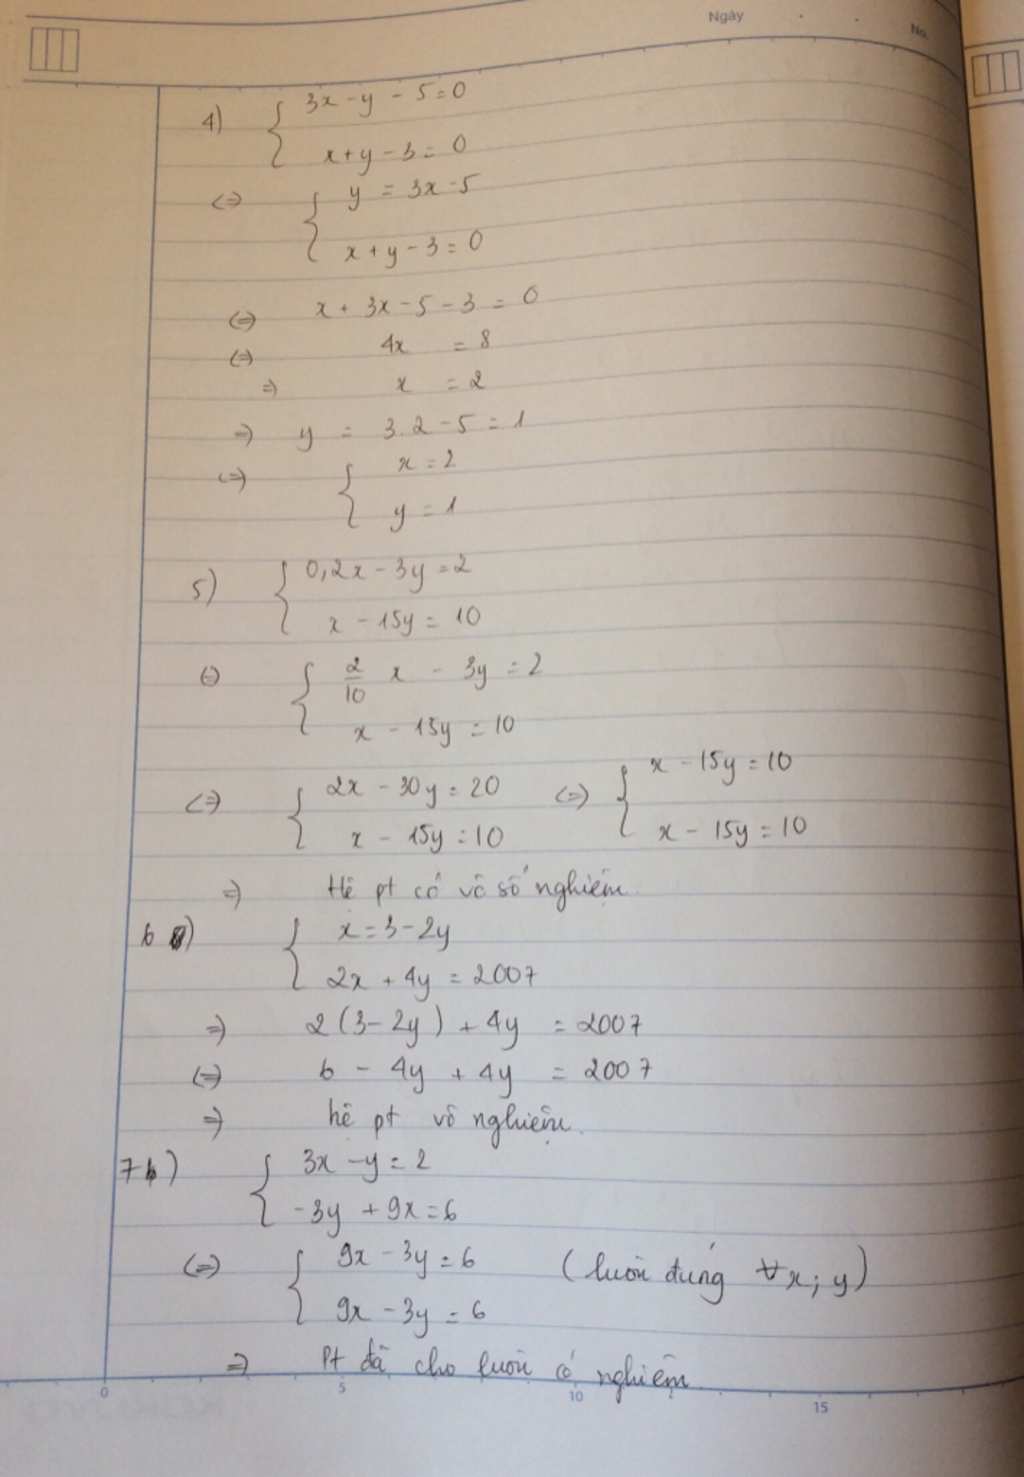 Ngày
No.
4) { 3x - y - 5 = 0
x + y - 3 = 0
<=> { y = 3x - 5
x + y - 3 = 0
<=> x + 3x - 5 - 3 = 0
<=> 4x = 8
=> x = 2
=> y = 3.2 - 5 = 1
<=> { x = 2
y = 1
5) { 0,2x - 3y = 2
x - 15y = 10
<=> { 2/10 x - 3y = 2
x - 15y = 10
<=> { 2x - 30y = 20 <=> { x - 15y = 10
x - 15y = 10 x - 15y = 10
=> Hê pt có vô số nghiệm
6) { x = 3 - 2y
2x + 4y = 2007
=> 2(3 - 2y) + 4y = 2007
<=> 6 - 4y + 4y = 2007
=> hệ pt vô nghiệm.
7) { 3x - y = 2
-3y + 9x = 6
<=> { 9x - 3y = 6 (luôn đúng ∀x; y)
9x - 3y = 6
=> Pt đã cho luôn có nghiệm
0 5 10 15